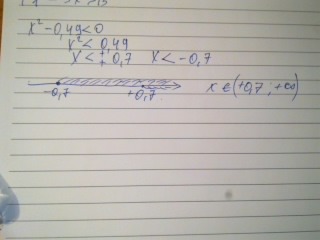 x² - 0,49 < 0
x² < 0,49
x < ± 0,7 x < -0,7
-0,7 +0,7 x ∈ (+0,7 ; +∞)